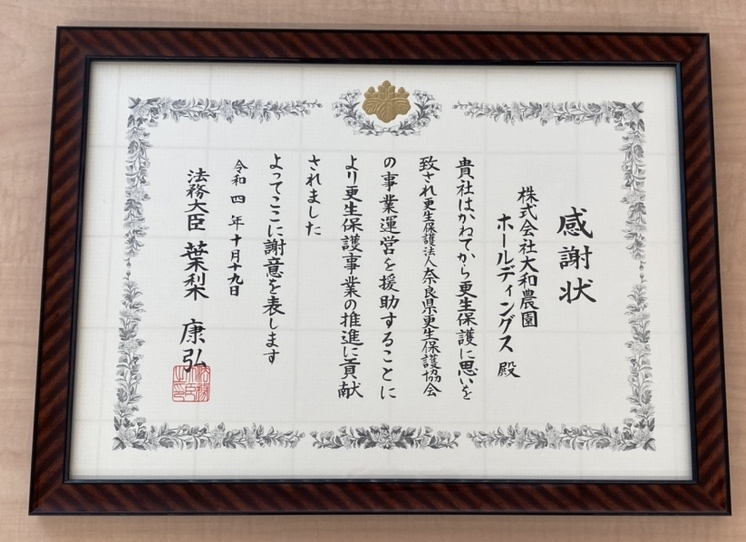 感謝状
株式会社大和農園
ホールディングス 殿
貴社はかねてから更生保護に思いを
致され更生保護法人奈良県更生保護協会
の事業運営を援助することに
より更生保護事業の推進に貢献
されました
よってここに謝意を表します
令和四年十月十九日
法務大臣 葉梨 康弘